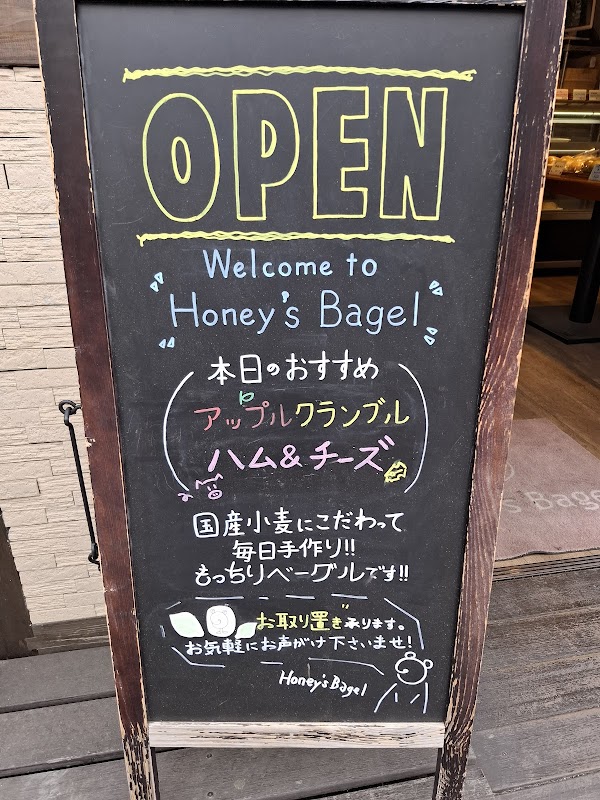 OPEN
Welcome to
Honey's Bagel
本日のおすすめ
アップルクランブル
ハム&チーズ
国産小麦にこだわって
毎日手作り!!
もっちりベーグルです!!
お取り置き承ります。
お気軽にお声がけ下さいませ!
Honey's Bagel
's Bage